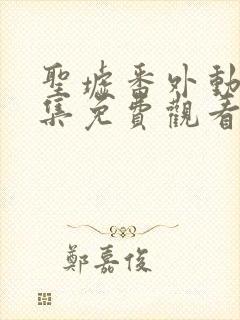 聖墟番外動
集免費觀看
鄭嘉俊